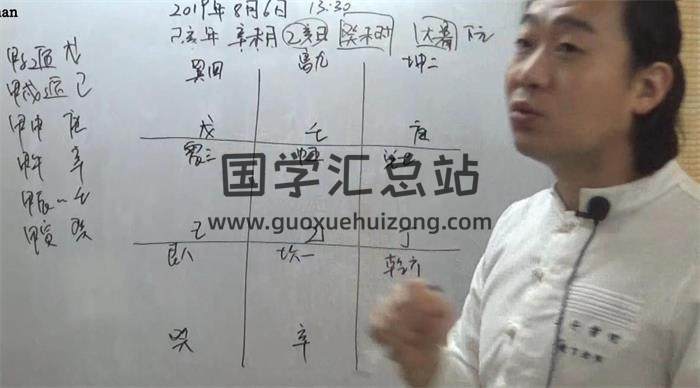 man
2019年8月6日 13:30
己亥年 辛未月 乙亥日 癸未时 大暑 下元
甲子遁戊
甲戌遁己
甲申 庚
甲午 辛
甲辰 壬
甲寅 癸
巽四 离九 坤二
戊 壬 庚
震三 中五
乙 丁
艮八 坎一 乾六
癸 辛
国学汇总站
www.guoxuehuizong.com